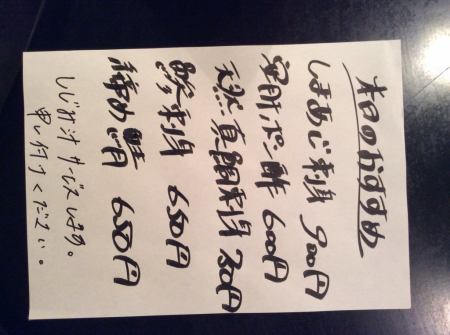 本日のおすすめ
しまあじ刺身 900円
安肝ポン酢 600円
天然真鯛刺身 750円
鮫刺身 650円
締め鯖 650円
しじみ汁サービスします。
申し付けください。